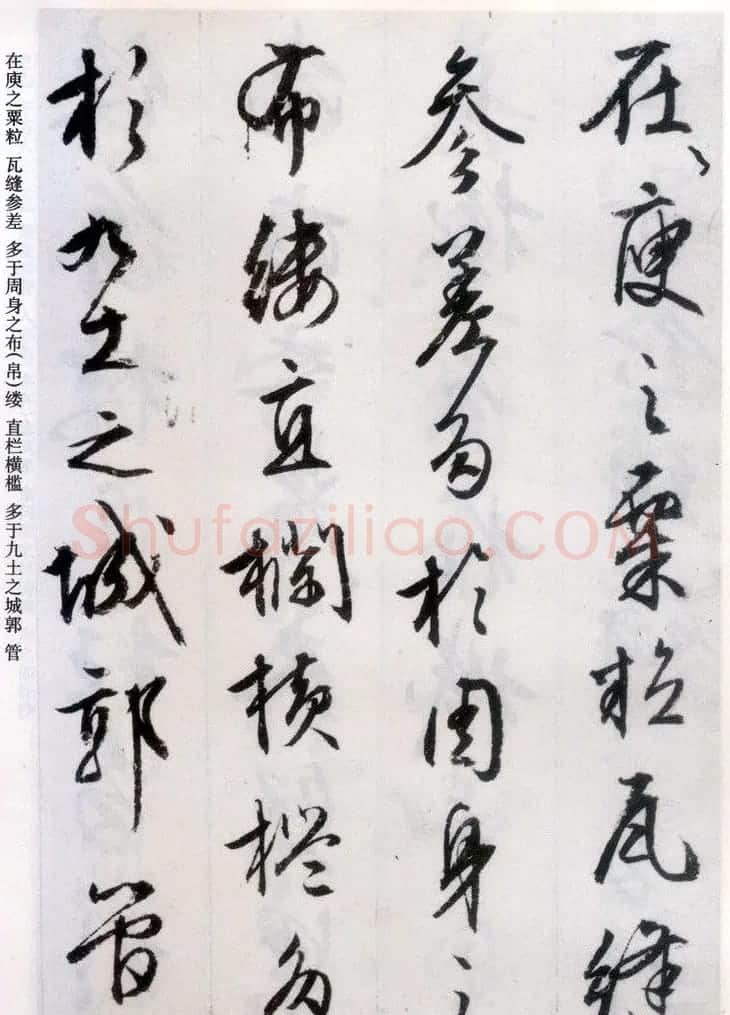 在、庾之粟粒瓦縫
參差多於周身之
布縷直欄橫檻多
於九土之城郭管
在庾之粟粒 瓦缝参差 多于周身之布(帛)缕 直栏横槛 多于九土之城郭 管
Shufaziliao.COM